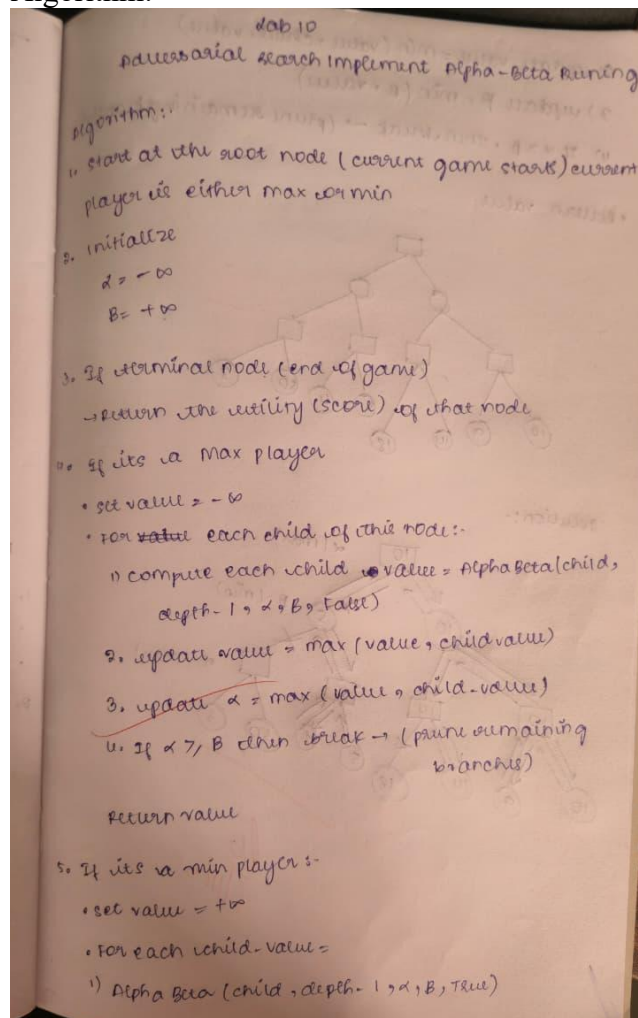 Algorithm:
Lab 10
Adversarial search Implement Alpha-Beta Runing
Algorithm:.
1. start at the root node (current game starts) current
player is either max or min
2. initialize
α = -∞
B = +∞
3. If terminal node (end of game)
→ Return the utility (score) of that node
4. If its a Max player
• set value = -∞
• For value each child of this node:-
1) compute each child value = AlphaBeta(child,
depth-1, α, B, False)
2. update value = max (value, childvalue)
3. update α = max (value, child-value)
4. If α >, B then break → (prune remaining
branches)
Return value
5. If its a min player :-
• set value = +∞
• For each child-value =
1) Alpha Beta (child, depth-1, α, B, True)